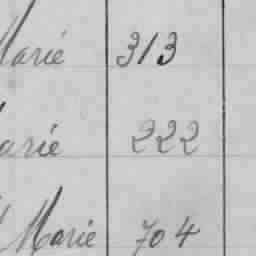 Marie 313
Marie 222
Marie 704